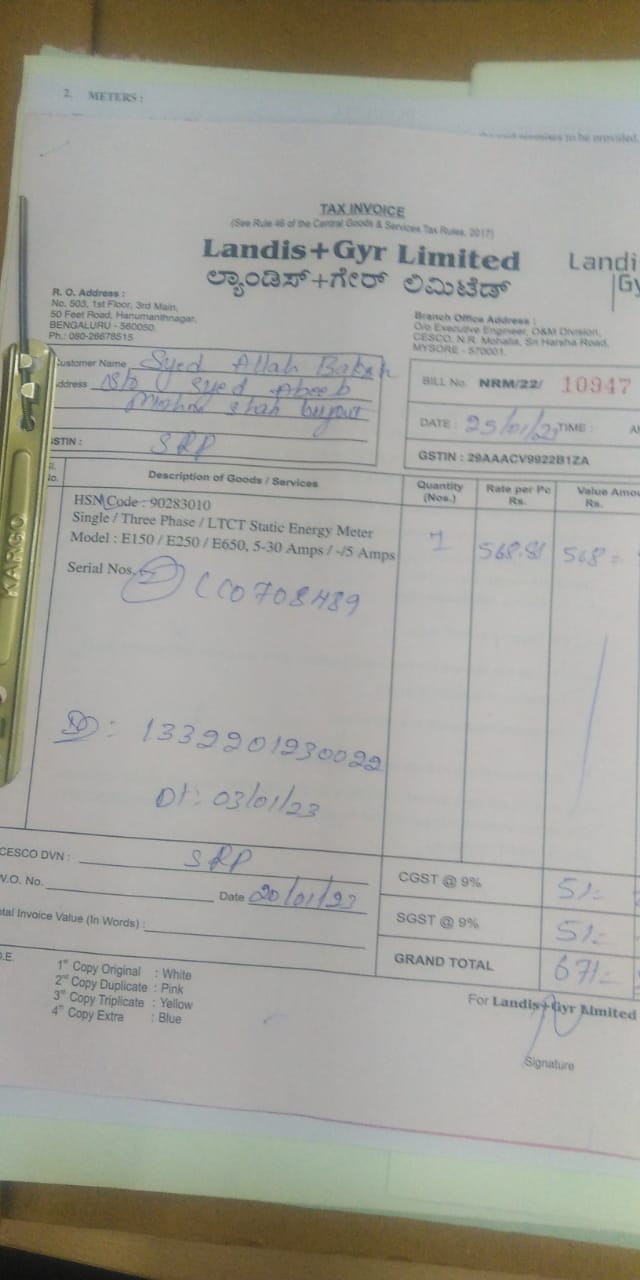 2. METERS :
to be provided.
TAX INVOICE
(See Rule 46 of the Central Goods & Services Tax Rules, 2017)
Landis+Gyr Limited
Landi
Gy
ಲ್ಯಾಂಡಿಸ್+ಗೇರ್ ಲಿಮಿಟೆಡ್
R. O. Address :
No. 503, 1st Floor, 3rd Main,
50 Feet Road, Hanumanthnagar,
BENGALURU - 560050.
Ph.: 080-26678515
Branch Office Address :
O/o Executive Engineer, O&M Division,
CESCO, N.R. Mohalla, Sri Harsha Road,
MYSORE - 570001.
Customer Name Syed Allah Baksh
Address S/o Syed
shah
GSTIN : SRP
BILL No. NRM/22/ 10947
DATE : 25/01/23 TIME :
GSTIN : 29AAACV9922B1ZA
Description of Goods / Services
Quantity (Nos.)
Rate per Pc Rs.
Value Amou Rs.
HSN Code : 90283010
Single / Three Phase / LTCT Static Energy Meter
Model : E150 / E250 / E650, 5-30 Amps / -/5 Amps
1 568.81 568=
Serial Nos. CC0708489
: 1332201230022
Dt: 03/01/23
CESCO DVN : SRP
W.O. No. Date 20/01/23
tal Invoice Value (In Words) :
CGST @ 9% 51=
SGST @ 9% 51=
GRAND TOTAL 671=
O.E.
1st Copy Original : White
2nd Copy Duplicate : Pink
3rd Copy Triplicate : Yellow
4th Copy Extra : Blue
For Landis+Gyr Limited
Signature
KARGO